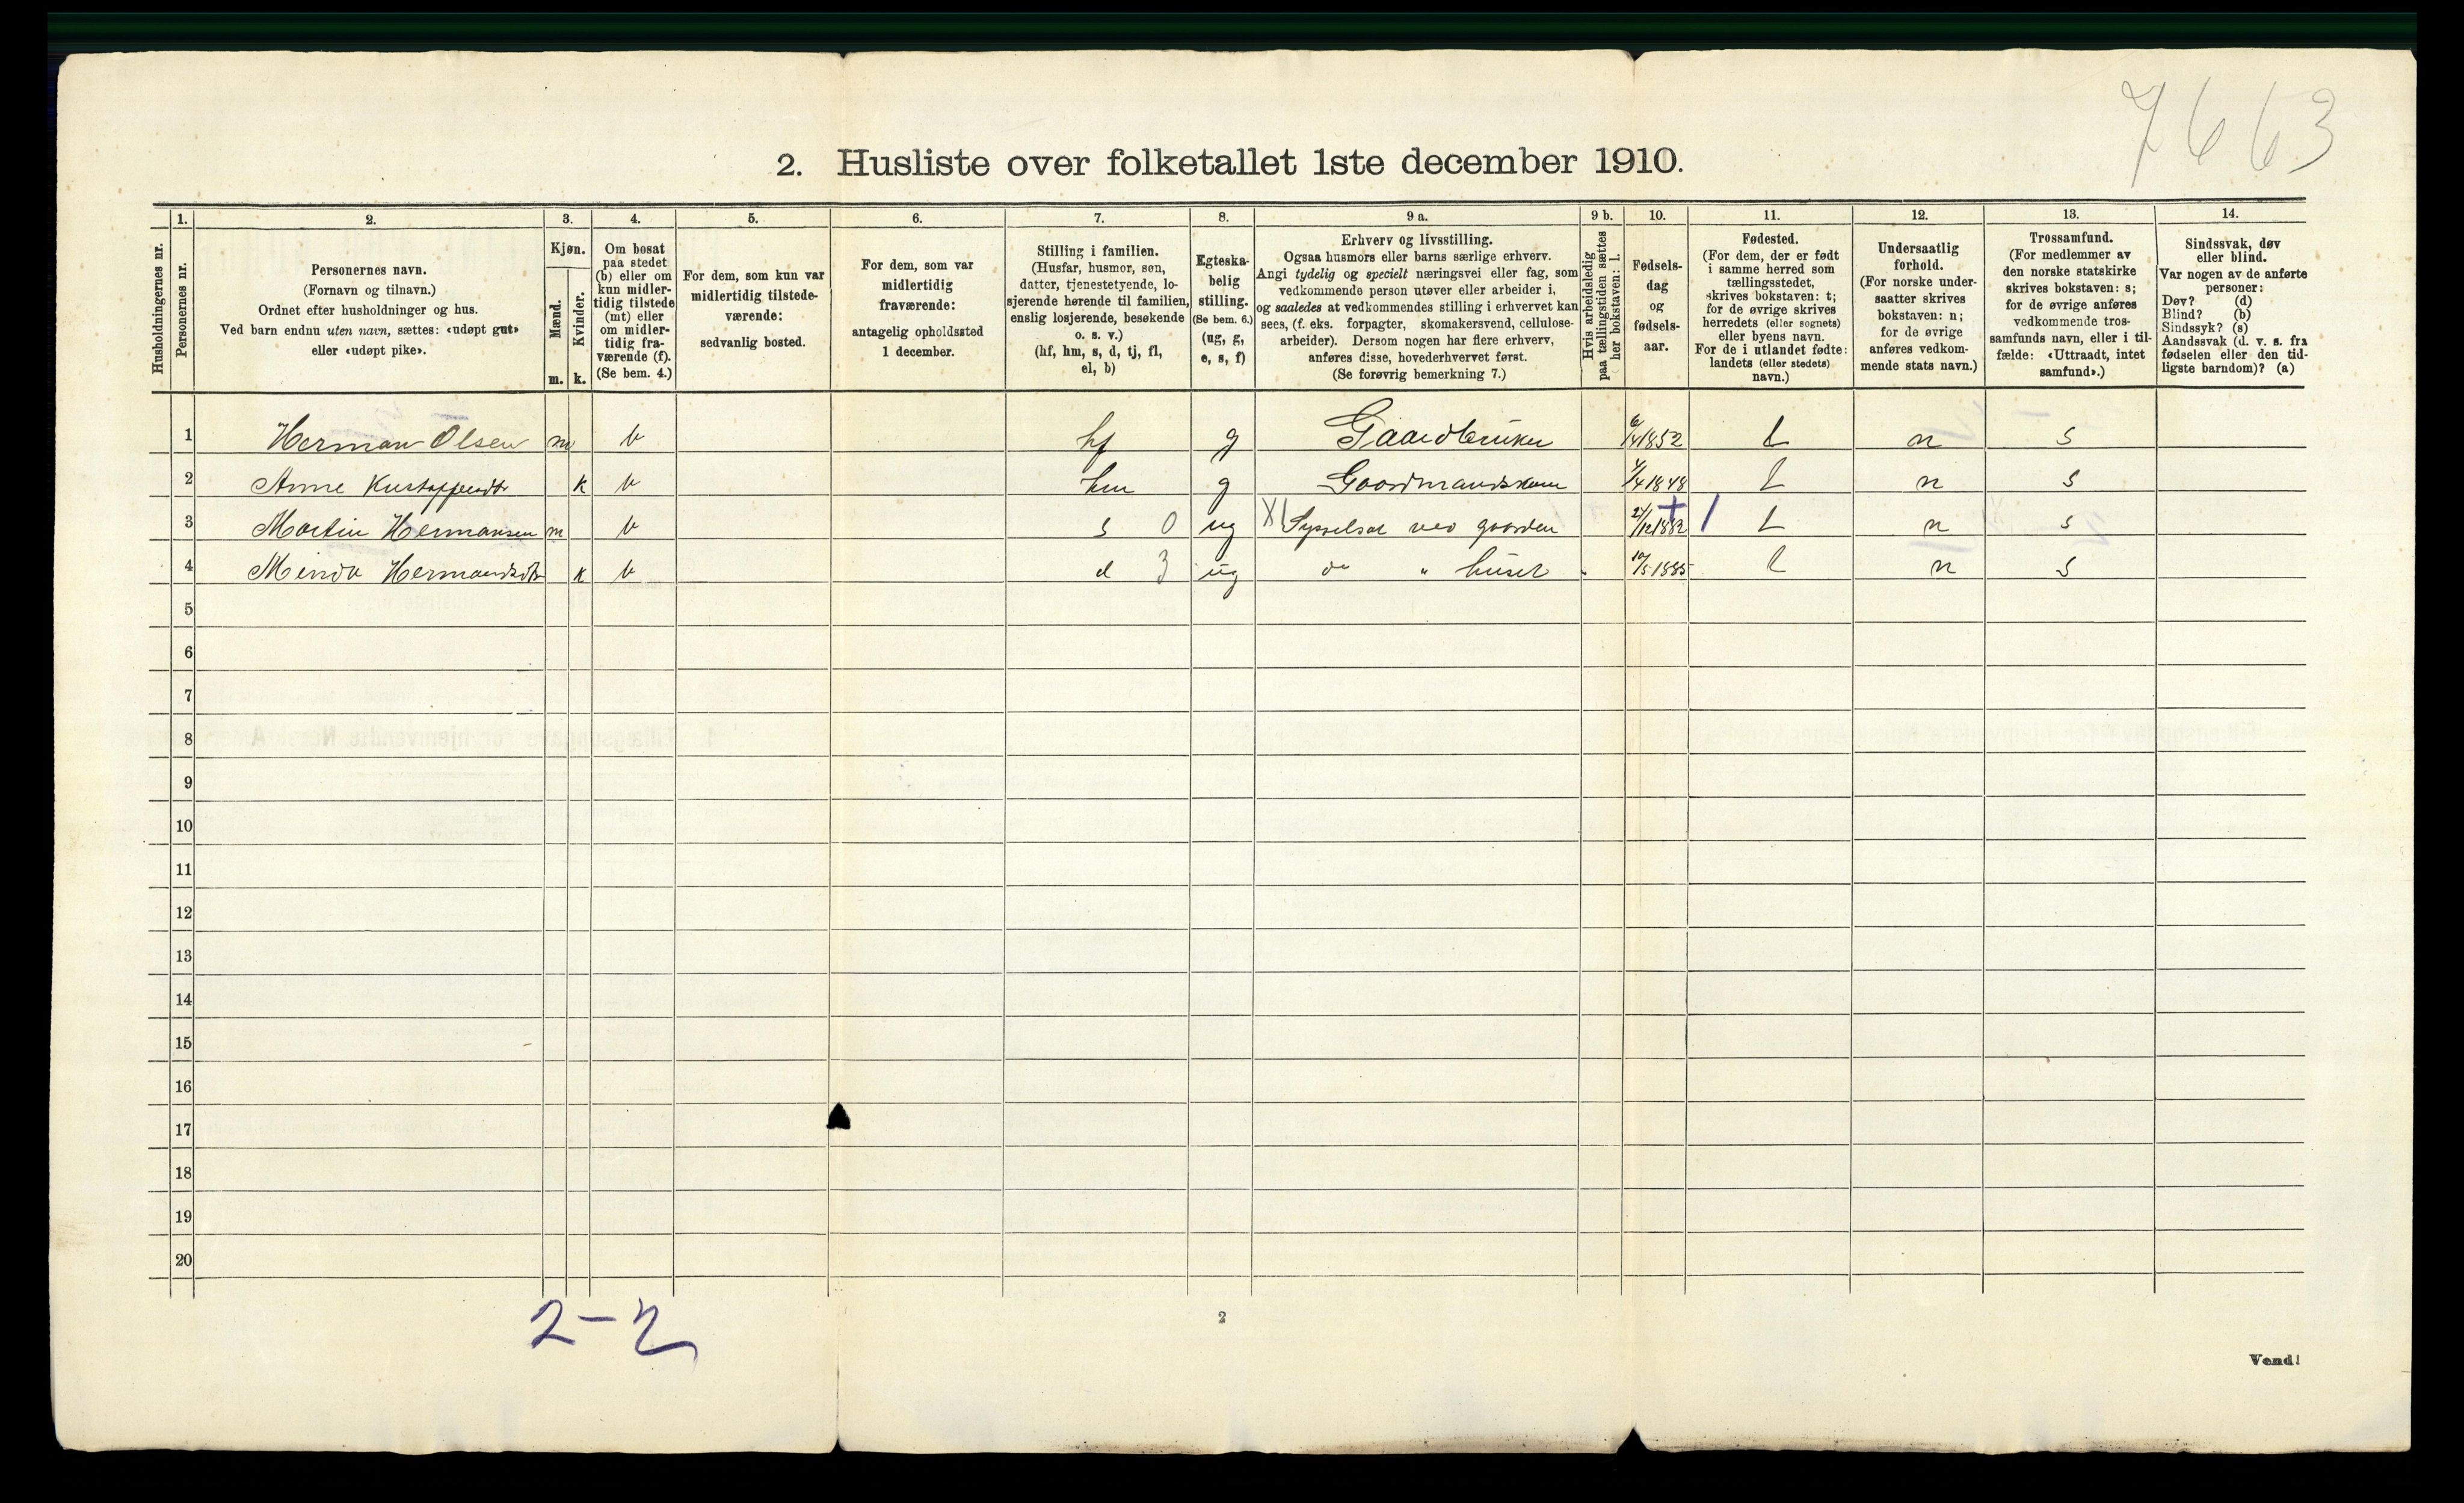 7663
2. Husliste over folketallet 1ste december 1910.
Husholdningernes nr.
1.
Personernes nr.
2.
Personernes navn.
(Fornavn og tilnavn.)
Ordnet efter husholdninger og hus.
Ved barn endnu uten navn, sættes: «udøpt gut»
eller «udøpt pike».
3.
Kjøn.
Mænd.
m.
Kvinder.
k.
4.
Om bosat
paa stedet
(b) eller om
kun midler-
tidig tilstede
(mt) eller
om midler-
tidig fra-
værende (f).
(Se bem. 4.)
5.
For dem, som kun var
midlertidig tilstede-
værende:
sedvanlig bosted.
6.
For dem, som var
midlertidig
fraværende:
antagelig opholdssted
1 december.
7.
Stilling i familien.
(Husfar, husmor, søn,
datter, tjenestetyende, lo-
sjerende hørende til familien,
enslig losjerende, besøkende
o. s. v.)
(hf, hm, s, d, tj, fl,
el, b)
8.
Egteska-
belig
stilling.
(Se bem. 6.)
(ug, g,
e, s, f)
9 a.
Erhverv og livsstilling.
Ogsaa husmors eller barns særlige erhverv.
Angi tydelig og specielt næringsvei eller fag, som
vedkommende person utøver eller arbeider i,
og saaledes at vedkommendes stilling i erhvervet kan
sees, (f. eks. forpagter, skomakersvend, cellulose-
arbeider). Dersom nogen har flere erhverv,
anføres disse, hovederhvervet først.
(Se forøvrig bemerkning 7.)
9 b.
Hvis arbeidsledig
paa tællingstiden sættes
her bokstaven: l.
10.
Fødsels-
dag
og
fødsels-
aar.
11.
Fødested.
(For dem, der er født
i samme herred som
tællingsstedet,
skrives bokstaven: t;
for de øvrige skrives
herredets (eller sognets)
eller byens navn.
For de i utlandet fødte:
landets (eller stedets)
navn.)
12.
Undersaatlig
forhold.
(For norske under-
saatter skrives
bokstaven: n;
for de øvrige
anføres vedkom-
mende stats navn.)
13.
Trossamfund.
(For medlemmer av
den norske statskirke
skrives bokstaven: s;
for de øvrige anføres
vedkommende tros-
samfunds navn, eller i til-
fælde: «Uttraadt, intet
samfund».)
14.
Sindssvak, døv
eller blind.
Var nogen av de anførte
personer:
Døv? (d)
Blind? (b)
Sindssyk? (s)
Aandssvak (d. v. s. fra
fødselen eller den tid-
ligste barndom)? (a)
1 Herman Olsen m b hf g Gaardbruker 6/4 1852 t n s
2 Anne k b hm g 4/4 1848 t n s
3 Martin Hermansen m b s 0 ug X1 Sysselsat ved gaarden 21/12 1882 t n s
4 Minda Hermandsdtr k b d 3 ug do " huset 10/5 1885 t n s
5
6
7
8
9
10
11
12
13
14
15
16
17
18
19
20
2-2
2
Vend!